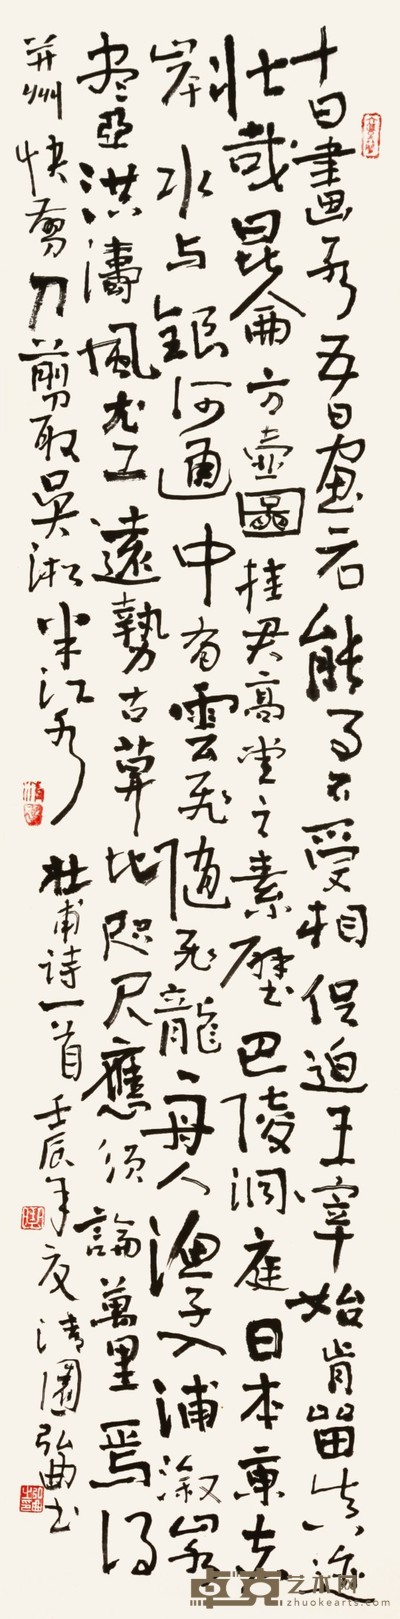 十日畫一水五日画一石能事不受相促迫王宰始肯留真迹
壯哉昆侖方壺圖挂君高堂之素壁巴陵洞庭日本東赤
岸水与銀河通中有雲氣隨飛龍舟人漁子入浦漵山木
盡亞洪濤風尤工遠勢古莫比咫尺應須論萬里焉得
并州快翦刀剪取吳淞半江水
杜甫诗一首壬辰年夏清園弘曲书
卓克艺术网
zhuokearts.com